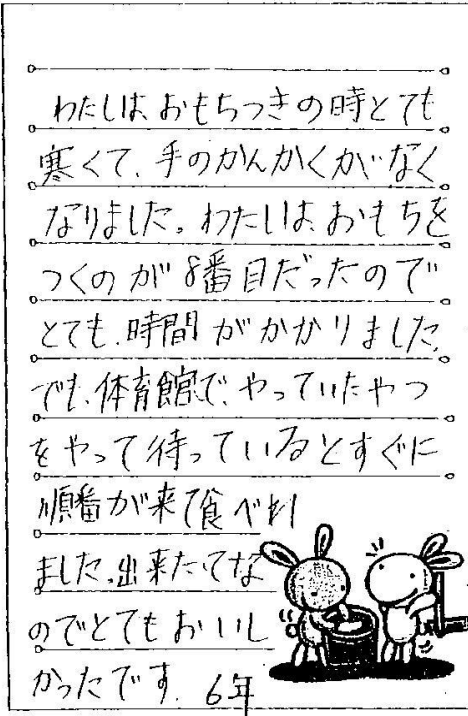 わたしは、おもちつきの時とても
寒くて、手のかんかくが、なく
なりました。わたしは、おもちを
つくのが8番目だったので
とても、時間がかかりました。
でも、体育館で、やっていたやつ
をやって待っているとすぐに
順番が来て食べれ
ました。出来たてな
のでとてもおいし
かったです. 6年